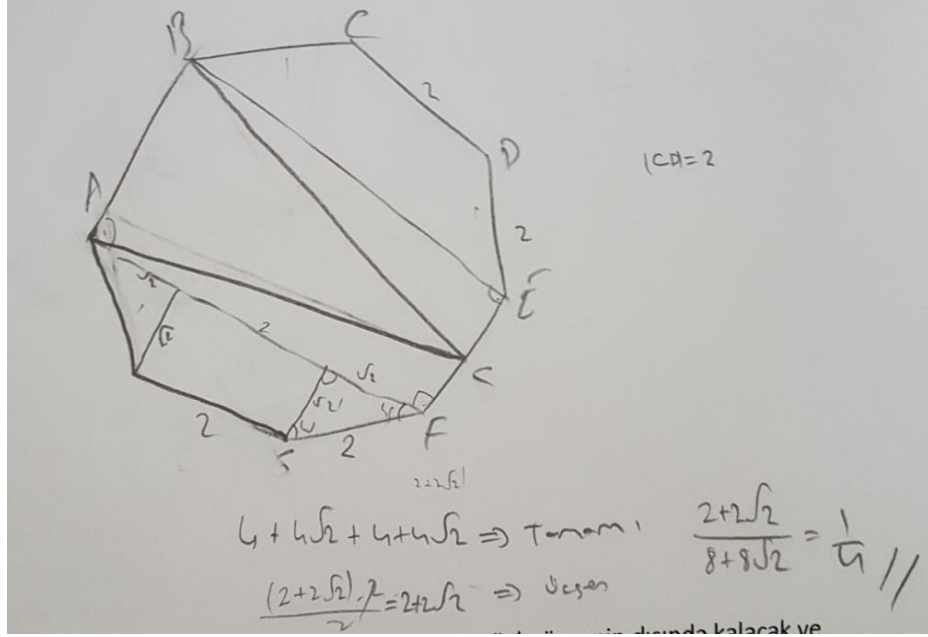 B
C
2
D
|CD|=2
A
2
E
√2
√2
2
√2
C
√2
2
2
F
2+2√2
4+4√2+4+4√2 ⇒ Tamamı
2+2√2 / 8+8√2 = 1/4 //
(2+2√2).2 / 2 = 2+2√2 ⇒ üçgen
dışında kalacak ve